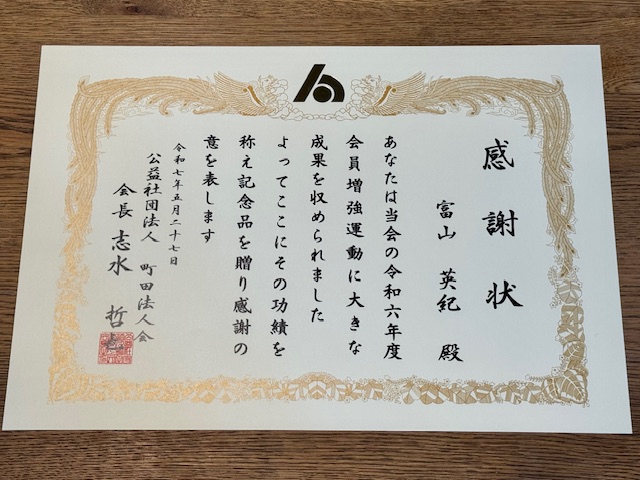 感謝状
富山 英紀 殿
あなたは当会の令和六年度
会員増強運動に大きな
成果を収められました
よってここにその功績を
称え記念品を贈り感謝の
意を表します
令和七年五月二十七日
公益社団法人 町田法人会
会長 志水 哲也